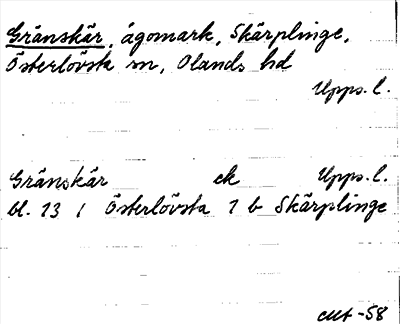 Gränskär, ägomark, Skärplinge,
Österlövsta sn, Olands hd
Upps. l.
Gränskär ek Upps. l.
bl. 13 I Österlövsta 1 b Skärplinge
-58